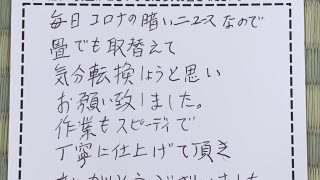 毎日コロナの暗いニュースなので
畳でも取替えて
気分転換しようと思い
お願い致しました。
作業もスピーディで
丁寧に仕上げて頂き
ありがとうございました